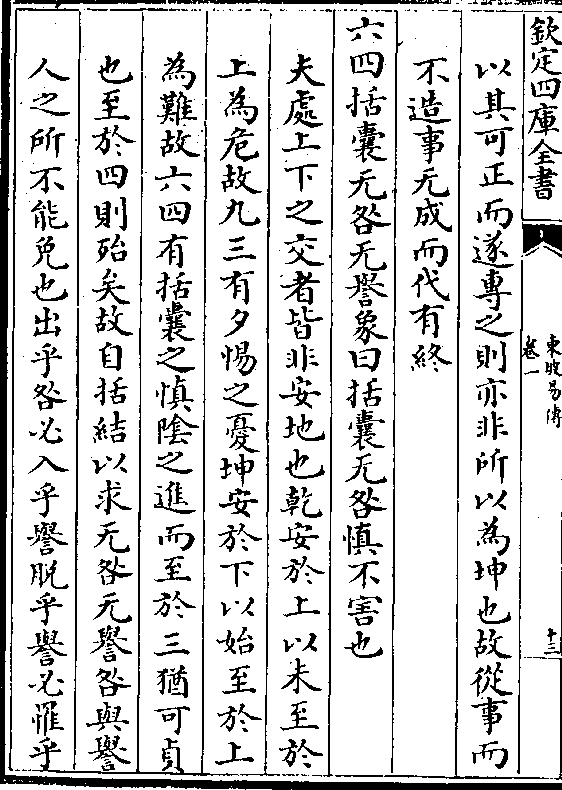 欽定四庫全書
東坡易傳
卷一
十三
以其可正而遂專之則亦非所以為坤也故從事而
不造事无成而代有終
六四括囊无咎无譽象曰括囊无咎慎不害也
夫處上下之交者皆非安地也乾安於上以未至於
上為危故九三有夕惕之憂坤安於下以始至於上
為難故六四有括囊之慎陰之進而至於三猶可貞
也至於四則殆矣故自括結以求无咎无譽咎與譽
人之所不能免也出乎咎必入乎譽脫乎譽必罹乎